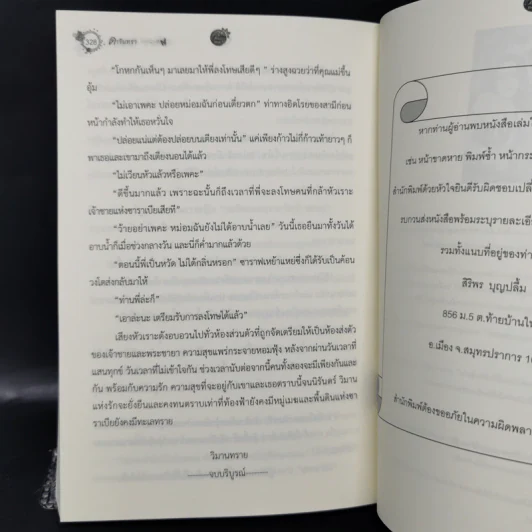 328
"โกหกกันเห็นๆ มาเลยมาให้พี่ลงโทษเสียดีๆ" ร่างสูงฉวยว่าที่คุณแม่ขึ้น
อุ้ม
"ไม่เอาเพคะ ปล่อยหม่อมฉันก่อนเดี๋ยวตก" ท่าทางอิดโรยของสามีก่อน
หน้ากำลังทำให้เธอหวั่นใจ
"ปล่อยแน่แต่ต้องปล่อยบนเตียงเท่านั้น" แค่เพียงก้าวไม่กี่ก้าวเท้ายาวๆ ก็
พาเธอและเขามาถึงเตียงนอนได้แล้ว
"ไม่เวียนหัวแล้วหรือเพคะ"
"ดีขึ้นมากแล้ว เพราะฉะนั้นก็ถึงเวลาที่พี่จะลงโทษคนที่กล้าหัวเราะ
เจ้าชายแห่งซาราเบียเสียที"
"ว้ายอย่าเพคะ หม่อมฉันยังไม่ได้อาบน้ำเลย" วันนี้เธอยืนมาทั้งวันได้
อาบน้ำก็เมื่อช่วงกลางวัน และนี่ก็ค่ำมากแล้วด้วย
"ตอนนี้พี่เป็นหวัด ไม่ได้กลิ่นหรอก" ซาราฟเย้าแหย่ซึ่งก็ได้รับเป็นค้อน
วงโตส่งกลับมาให้
"ท่านพี่ล่ะก็"
"เอาล่ะนะ เตรียมรับการลงโทษได้แล้ว"
เสียงหัวเราะดังอบอวนไปทั่วห้องส่วนตัวที่ถูกจัดเตรียมให้เป็นห้องส่งตัว
ของเจ้าชายและพระชายา ความสุขแพร่กระจายหอมฟุ้ง หลังจากผ่านวันเวลาที่
แสนทุกข์ วันเวลาที่ไม่เข้าใจกัน ช่วงเวลานับต่อจากนี้คนทั้งสองจะมีเพียงกันและ
กัน พร้อมกับความรัก ความสุขที่จะอยู่กับเขาและเธอตราบนี้จนนิรันดร์ วิมาน
แห่งรักจะยั่งยืนและคงทนตราบเท่าที่ท้องฟ้ายังคงมีหมู่เมฆและพื้นดินแห่งซา
ราเบียยังคงมีทะเลทราย
วิมานทราย
จบบริบูรณ์
หากท่านผู้อ่านพบหนังสือเล่มใ
เช่น หน้าขาดหาย พิมพ์ซ้ำ หน้ากร
สำนักพิมพ์ด้วยหัวใจยินดีรับผิดชอบเปลี่
รบกวนส่งหนังสือพร้อมระบุรายละเอี
รวมทั้งแนบที่อยู่ของท่า
สิริพร บุญปลื้ม
856 ม.5 ต.ท้ายบ้านให
อ.เมือง จ.สมุทรปราการ 10
สำนักพิมพ์ต้องขออภัยในความผิดพลา